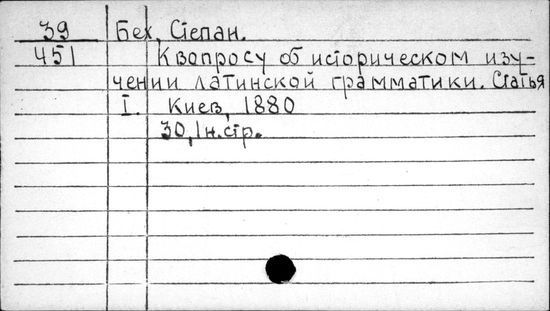 39 Бех, Степан.
451 К вопросу об историческом изу-
чении латинской грамматики. Статья
I. Киев, 1880
30, 1н.стр.